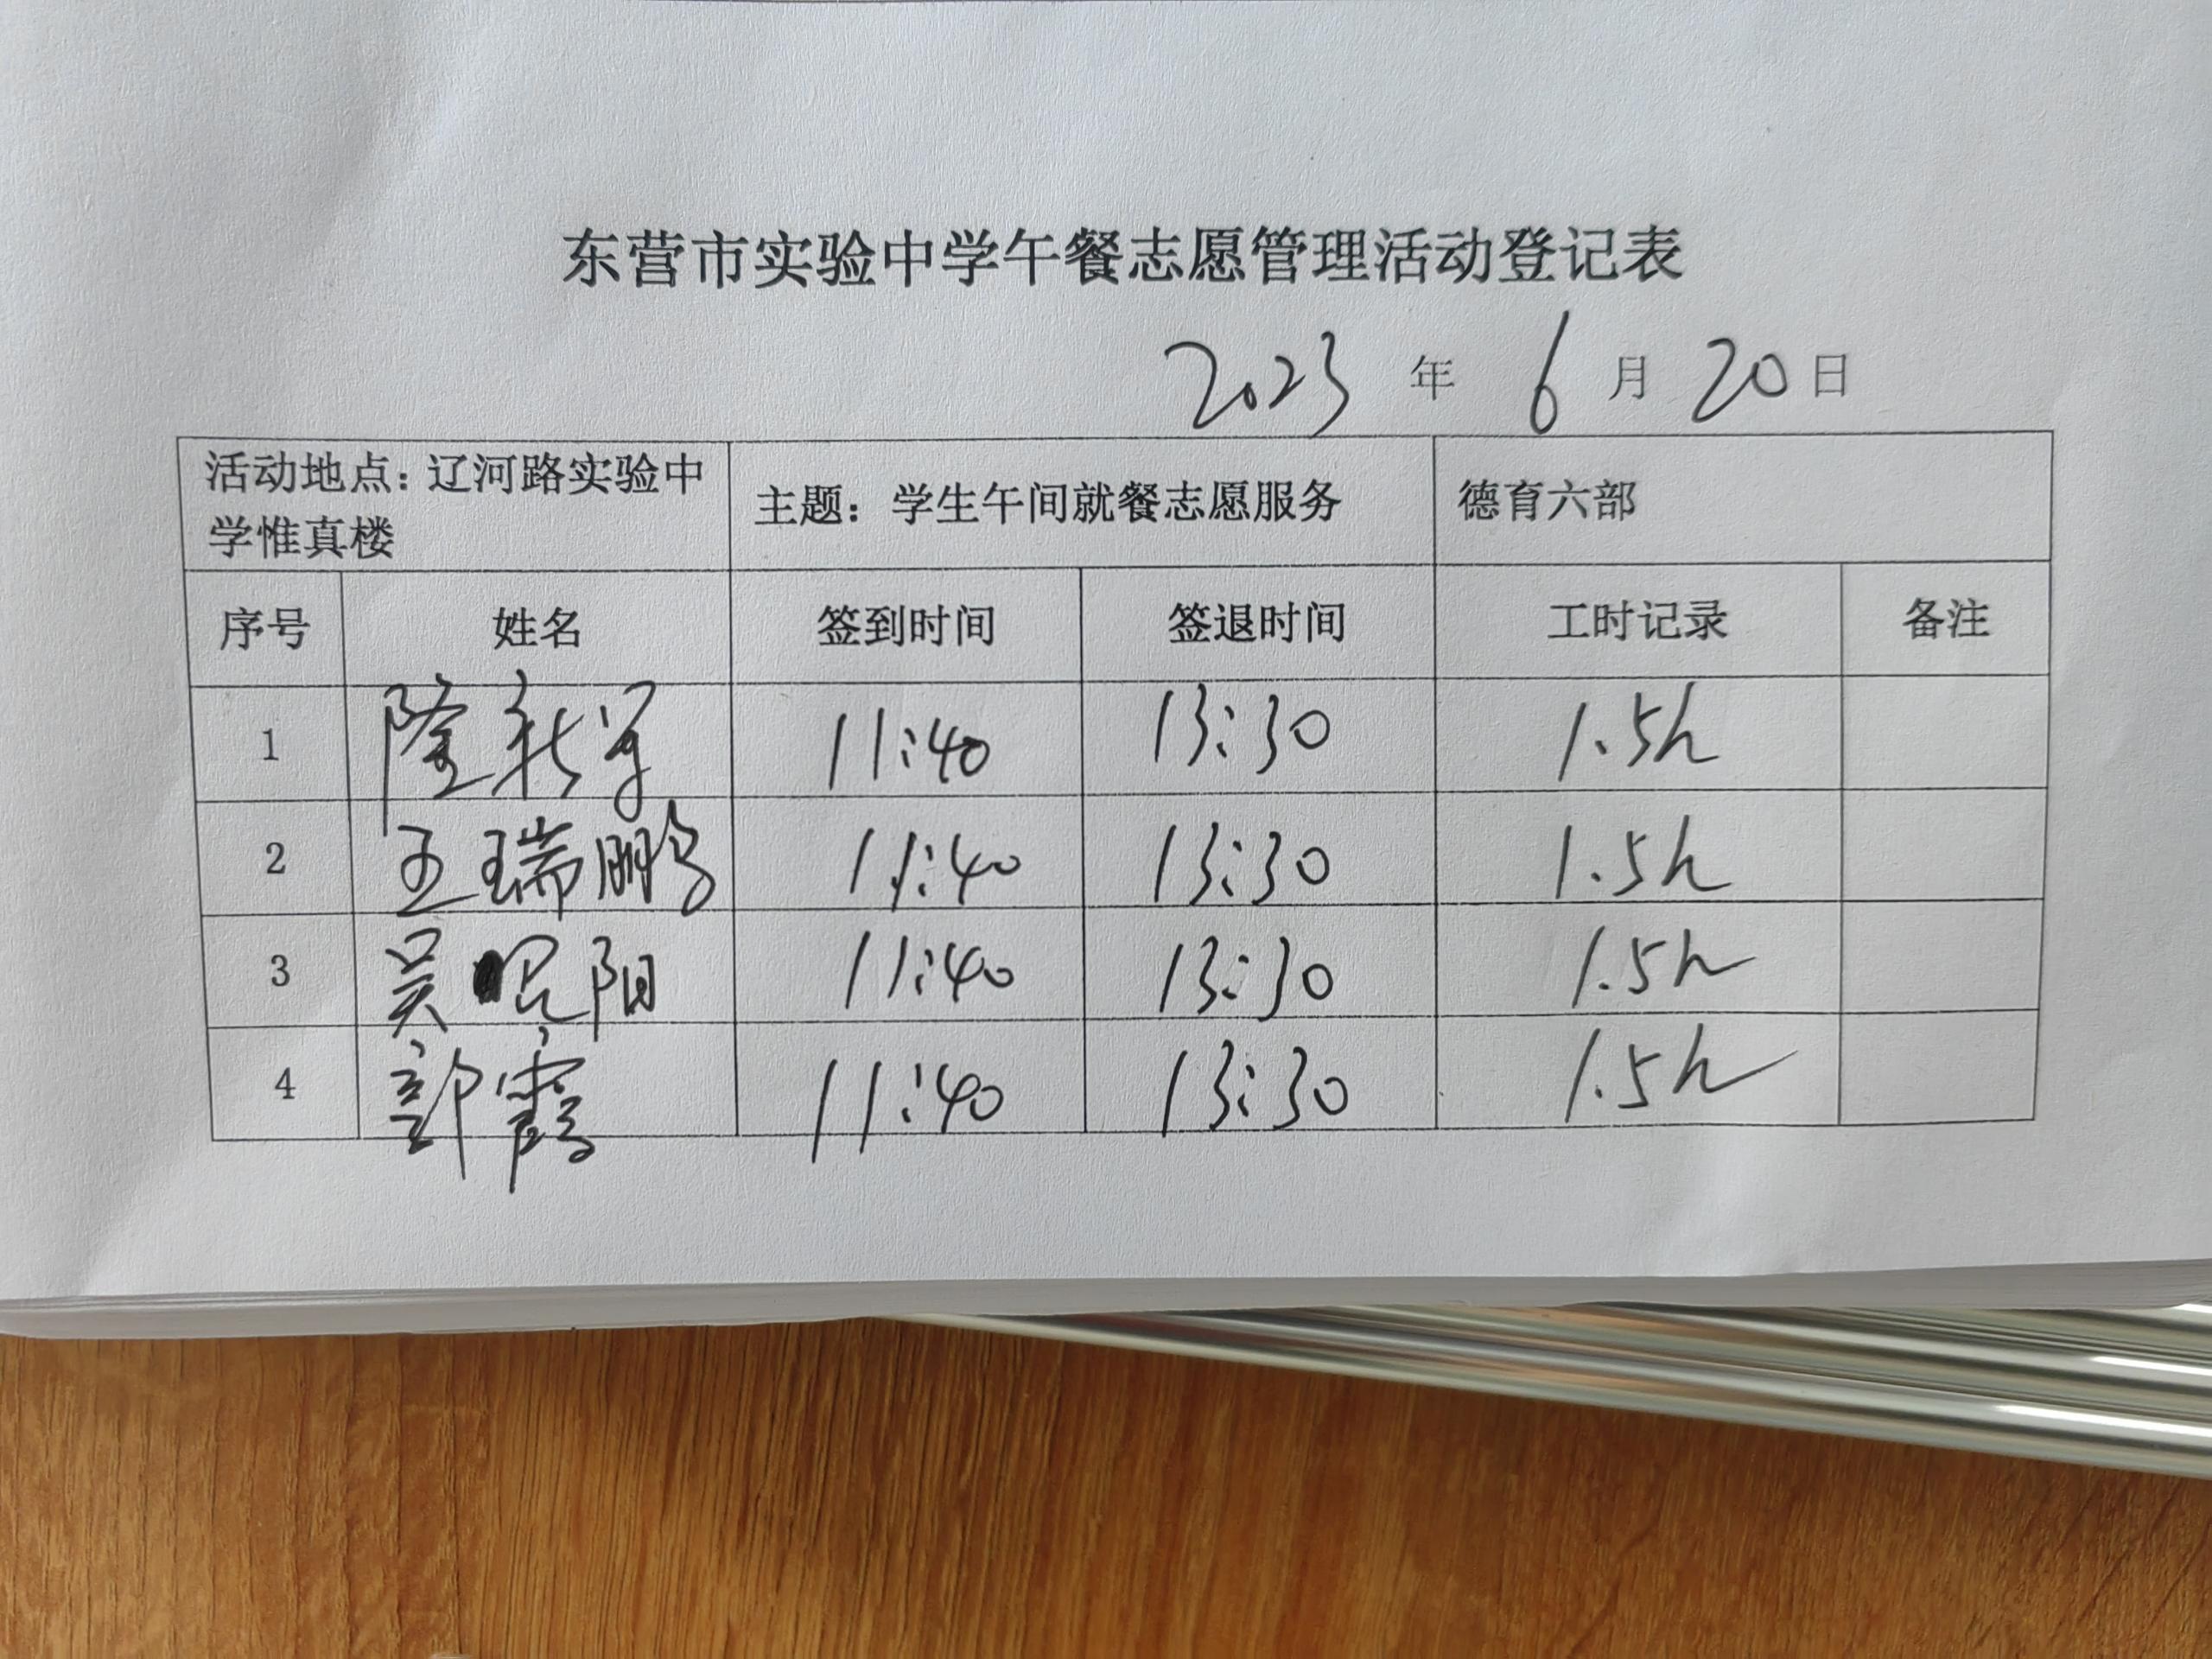 东营市实验中学午餐志愿管理活动登记表
2023 年 6 月 20 日
活动地点：辽河路实验中学惟真楼 主题：学生午间就餐志愿服务 德育六部
序号 姓名 签到时间 签退时间 工时记录 备注
1 隆新军 11:40 13:30 1.5h
2 王瑞鹏 11:40 13:30 1.5h
3 吴 阳 11:40 13:30 1.5h
4 郭霞 11:40 13:30 1.5h